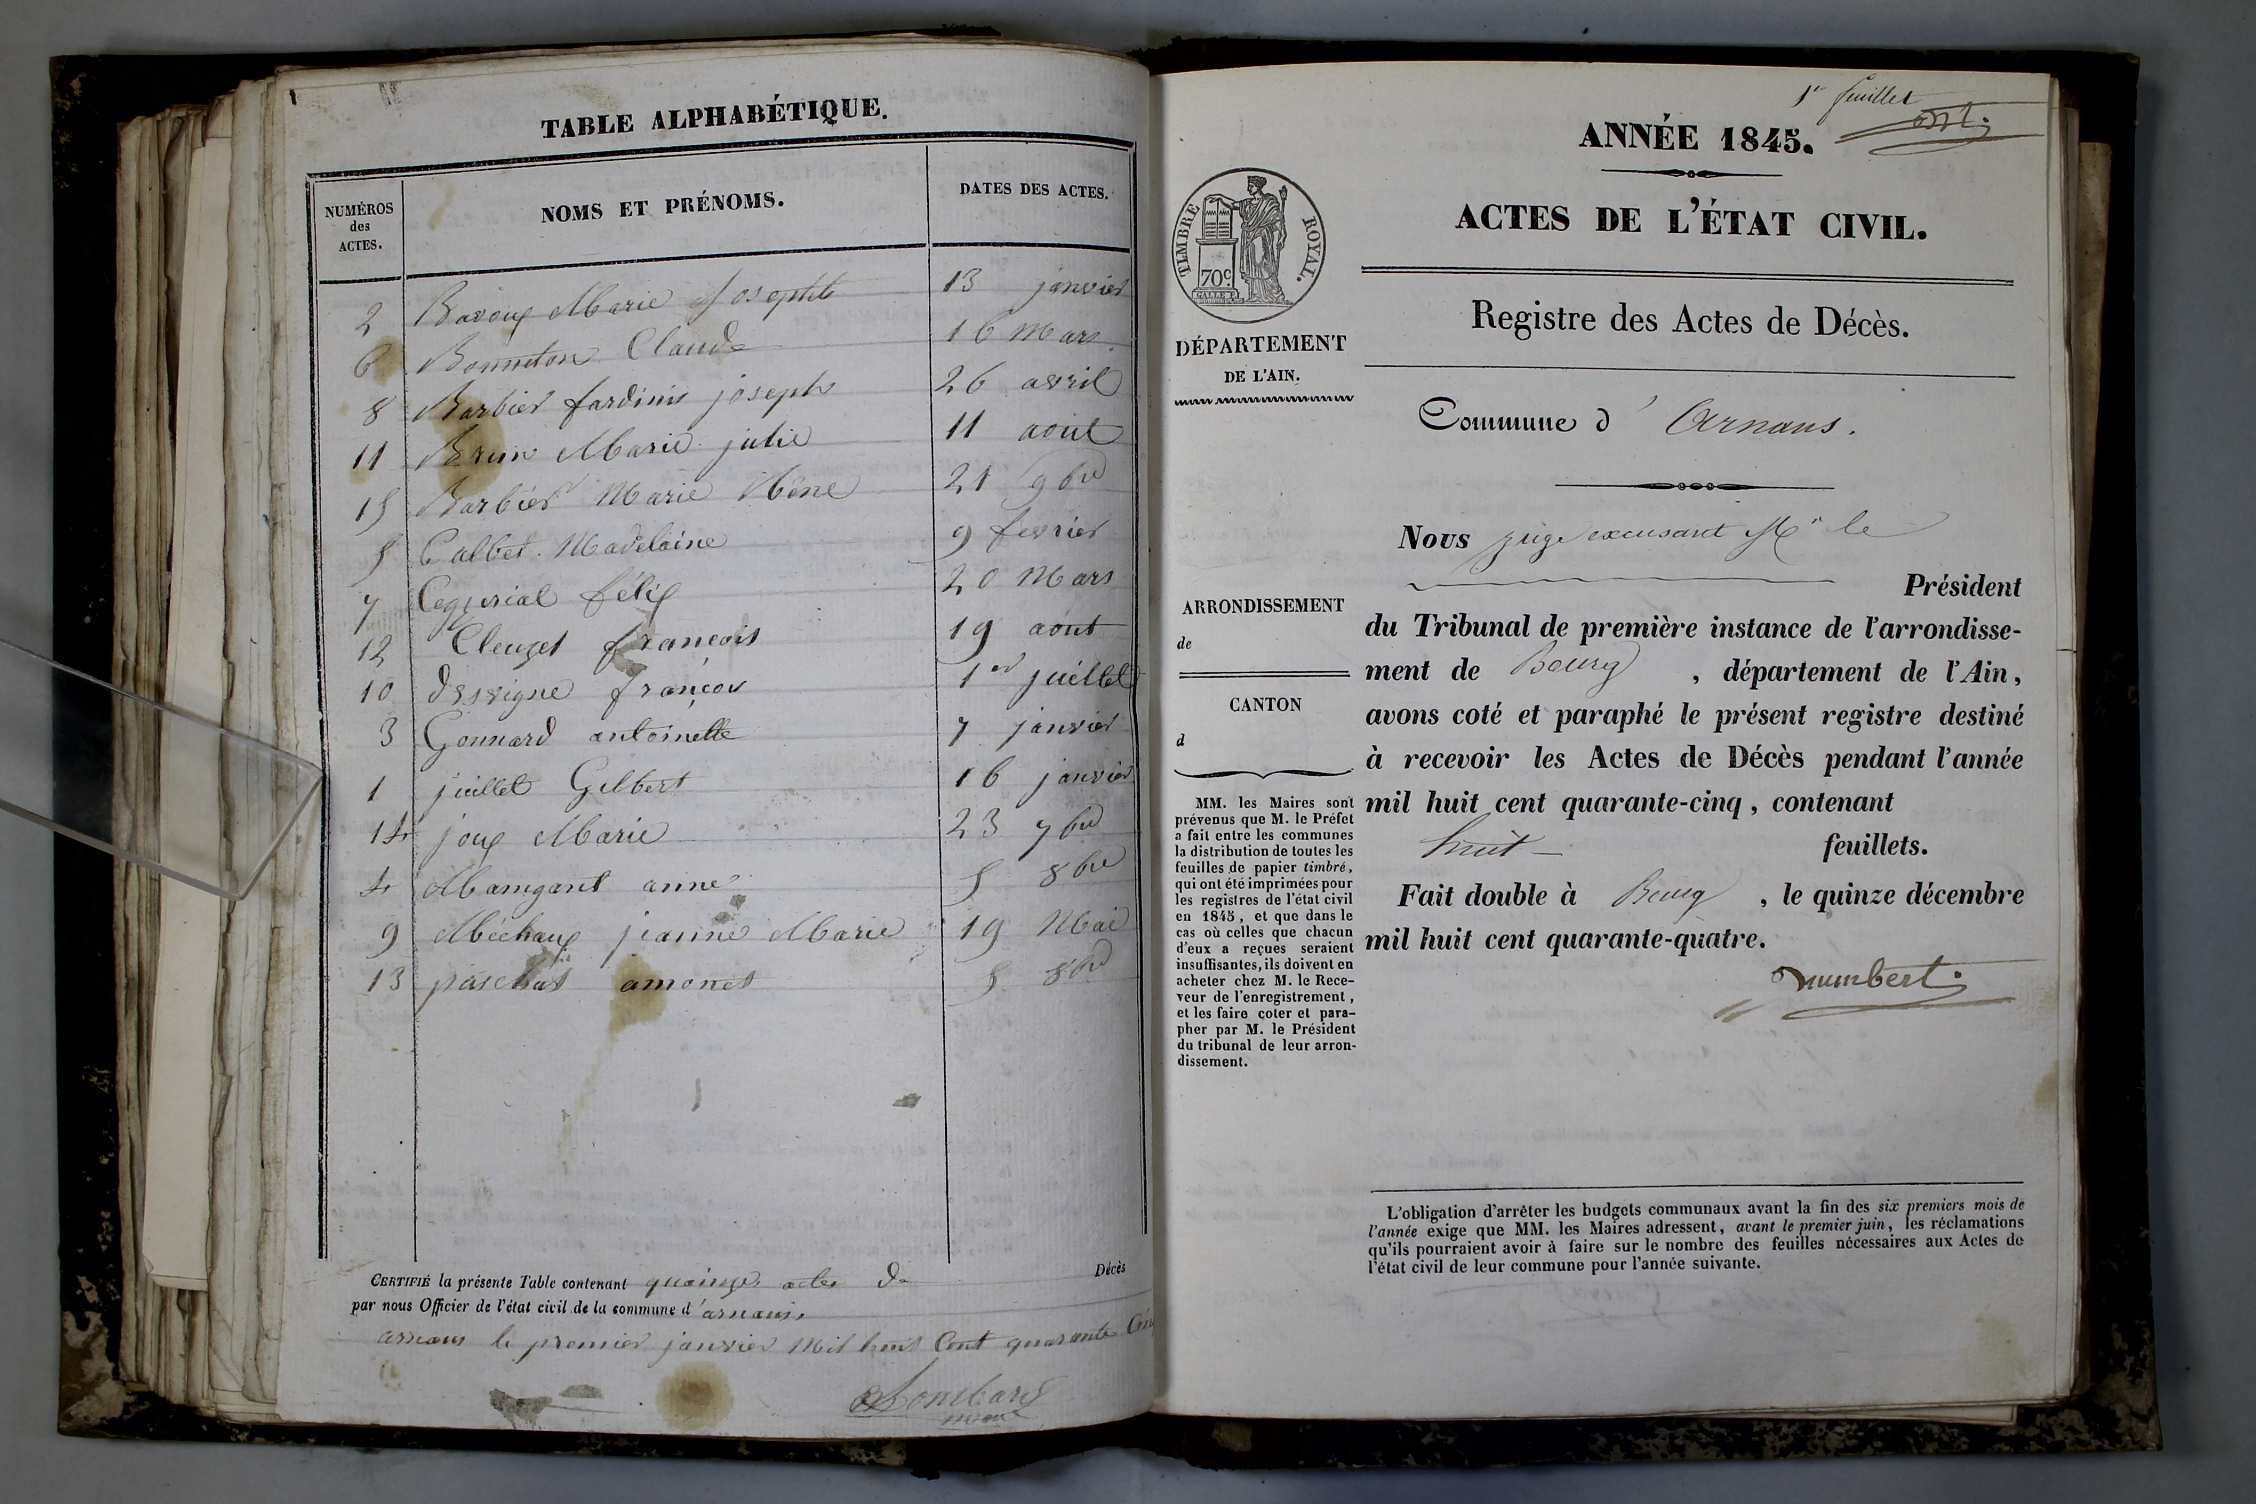 TABLE ALPHABÉTIQUE.
NUMÉROS des ACTES. NOMS ET PRÉNOMS. DATES DES ACTES.
2 Bavoux Marie Josephte 13 janvier
6 Bonneton Claude 16 Mars
8 Barbier fardinis joseph 26 avril
11 Brun Marie julie 11 aout
15 Barbier Marie 21 9bre
5 Callet Madelaine 9 fevrier
7 félix 20 Mars
12 Cleuzet françois 19 aout
10 dessigne françois 1er juillet
3 Gonnard antoinette 7 janvier
1 juillet Gilbert 16 janvier
14 joux Marie 23 7bre
4 Mamgant anne 5 8bre
9 Méchaux jeanne Marie 19 Mai
13 paschat amonet 5 8bre
CERTIFIÉ la présente Table contenant quainze actes de Décès
par nous Officier de l'état civil de la commune d'arnans.
arnans le premier janvier Mil huit Cent quarante Cin
Lombard
maire
1er feuillet
ANNÉE 1845.
ACTES DE L'ÉTAT CIVIL.
TIMBRE ROYAL.
70c
Registre des Actes de Décès.
DÉPARTEMENT
DE L'AIN.
Commune d' Arnans.
Nous juge excusant Mr le
Président
du Tribunal de première instance de l'arrondisse-
ment de Bourg, département de l'Ain,
avons coté et paraphé le présent registre destiné
à recevoir les Actes de Décès pendant l'année
mil huit cent quarante-cinq, contenant
huit feuillets.
Fait double à Bourg, le quinze décembre
mil huit cent quarante-quatre.
humbert
ARRONDISSEMENT
de
CANTON
d
MM. les Maires sont
prévenus que M. le Préfet
a fait entre les communes
la distribution de toutes les
feuilles de papier timbré,
qui ont été imprimées pour
les registres de l'état civil
en 1845, et que dans le
cas où celles que chacun
d'eux a reçues seraient
insuffisantes, ils doivent en
acheter chez M. le Rece-
veur de l'enregistrement,
et les faire coter et para-
pher par M. le Président
du tribunal de leur arron-
dissement.
L'obligation d'arrêter les budgets communaux avant la fin des six premiers mois de
l'année exige que MM. les Maires adressent, avant le premier juin, les réclamations
qu'ils pourraient avoir à faire sur le nombre des feuilles nécessaires aux Actes de
l'état civil de leur commune pour l'année suivante.